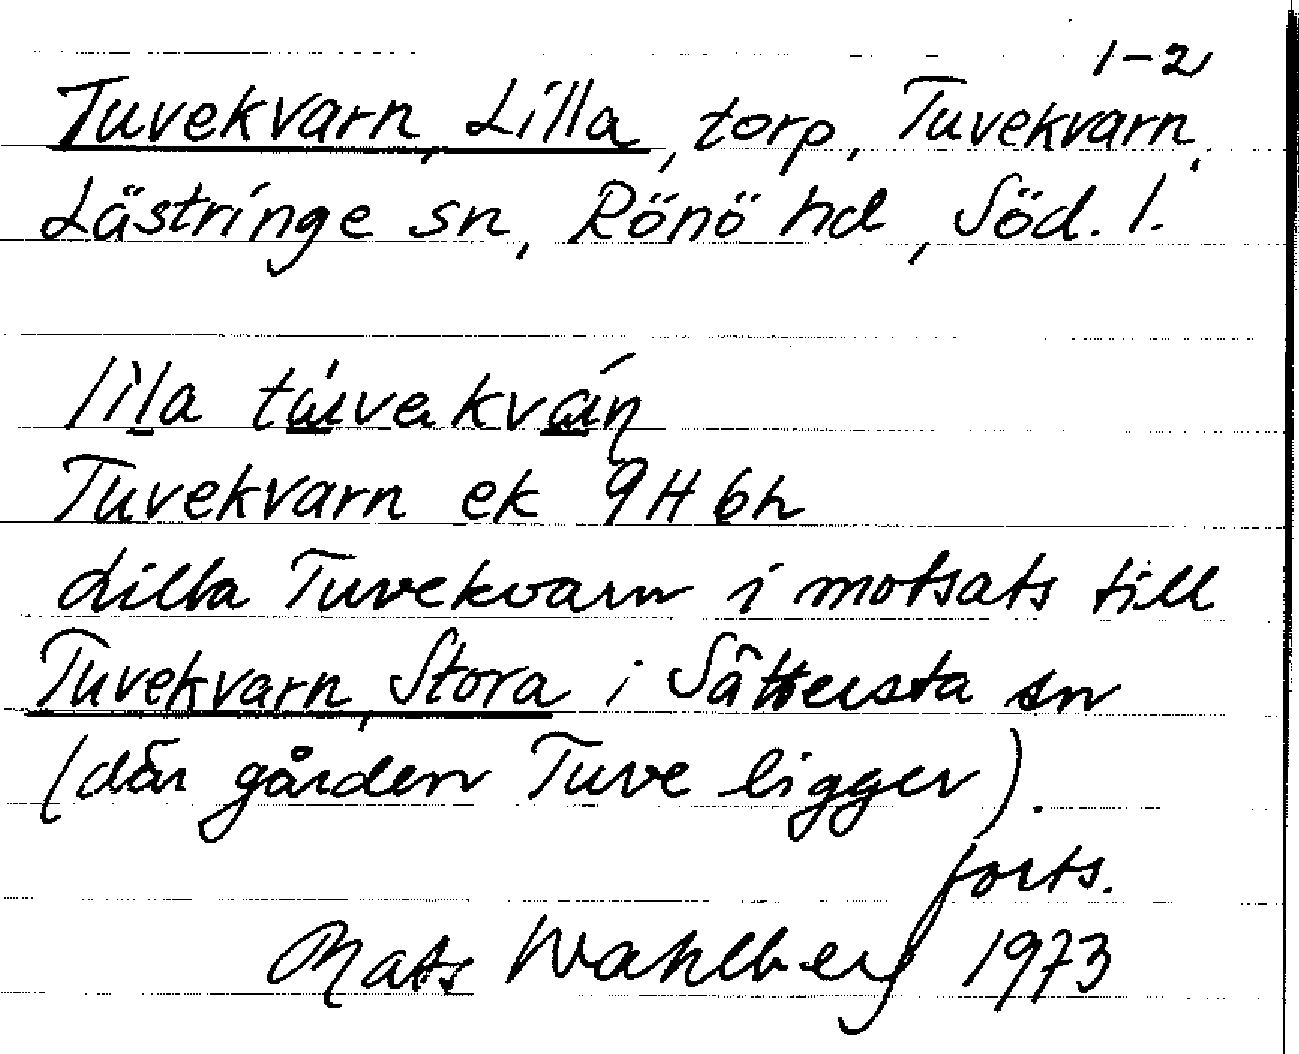 1-2
Tuvekvarn, Lilla, torp, Tuvekvarn,
Lästringe sn, Rönö hd, Söd. l.
lìla
Tuvekvarn ek 9H 6h
Lilla Tuvekvarn i motsats till
Tuvekvarn, Stora i Sättersta sn
(där gården Tuve ligger).
forts.
Mats Wahlberg 1973